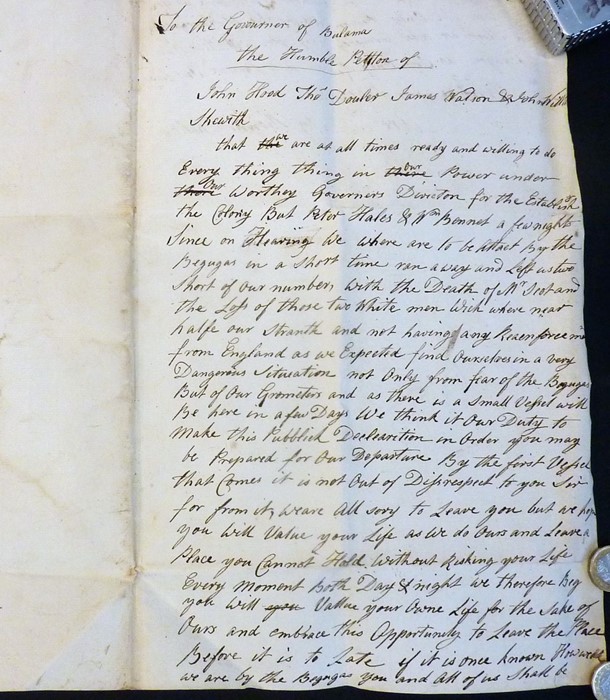 To the Governer of Bulama
the Humble Petition of
John Hood Thos Douler James Watson & John
Shewith
that the we are at all times ready and willing to do
Every thing thing in there Our Power under
there Our Worthey Governers Diriction for the Establish
the Colony But Peter Hales & Wm Bennet a few nights
Since on Hearing We where are to be attact By the
Begugas in a Short time ran away and Left us two
Short of Our numbers with the Death of Mr Scot and
the Loss of those two White men Wich where near
halfe our Stranth and not having any Reaenforceme
from England as we Expected find Ourselves in a very
Dangerous Situation not Only from fear of the Begugas
But of Our Grometors and as there is a Small Vessel will
Be here in a few Days We think it Our Duty to
Make this Pubblick Declearition in Order you may
be Prepared for Our Departure By the first Vessel
that Comes it is not Out of Dissrespect to you Sir
for from it, we are All sory to Leave you but we hope
you Will Value your Life as We do Ours and Leave a
Place you Cannot Hold Without Risking your Life
Every Moment Both Day & night we therefore Beg
you Will you Vallue your Owne Life for the Sake of
Ours and embrace this Opportunity to Leave the Place
Before it is to Late if it is once known How weak
we are by the Begugas you and All of us Shall be